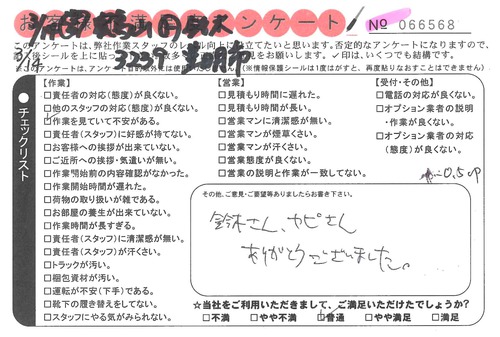 アンケート
No 066568
このアンケートは、弊社作業スタッフのレベル向上に役立てたいと思います。否定的なアンケートになりますので、
✓印は、いくつでも結構です。
【作業】
□責任者の対応(態度)が良くない。
□他のスタッフの対応(態度)が良くない。
□作業を見ていて不安がある。
□責任者(スタッフ)に好感が持てない。
□お客様への挨拶が出来ていない。
□ご近所への挨拶・気遣いが無い。
□作業開始前の内容確認がなかった。
□作業開始時間が遅れた。
□荷物の取り扱いが雑である。
□お部屋の養生が出来ていない。
□作業時間が長すぎる。
□責任者(スタッフ)に清潔感が無い。
□責任者(スタッフ)が汗くさい。
□トラックが汚い。
□梱包資材が汚い。
□運転が不安(下手)である。
□靴下の履き替えをしてない。
□スタッフにやる気がみられない。
【営業】
□見積もり時間に遅れた。
□見積もり時間が長い。
□営業マンに清潔感が無い。
□営業マンが煙草くさい。
□営業マンが汗くさい。
□営業態度が良くない。
□営業の説明と作業が一致してない。
【受付・その他】
□電話の対応が良くない。
□オプション業者の説明
・作業が良くない。
□オプション業者の対応
(態度)が良くない。
0.5 UP
●チェックリスト
その他、ご意見・ご要望等ありましたらお書き下さい。
鈴木さん、カピさん
ありがとうございました。
☆当社をご利用いただきまして、ご満足いただけたでしょうか?
□不満 □やや不満 □普通 □やや満足 □満足